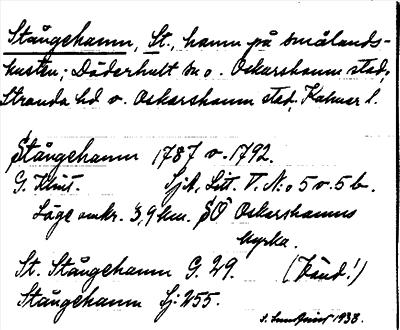 Stångehamn, St., hamn på smålands-
kusten; Döderhult sn o. Oskarshamn stad,
Stranda hd o. Oskarshamn stad, Kalmar l.
Stångehamn 1787 o. 1792.
G. Klint. SjA, Litt. V. N:o 5 o. 5 b.
Läge omkr. 3,9 km. SO Oskarshamns
kyrka.
St. Stångehamn G. 29. (Känd!)
Stångehamn Sj: 255.
1938